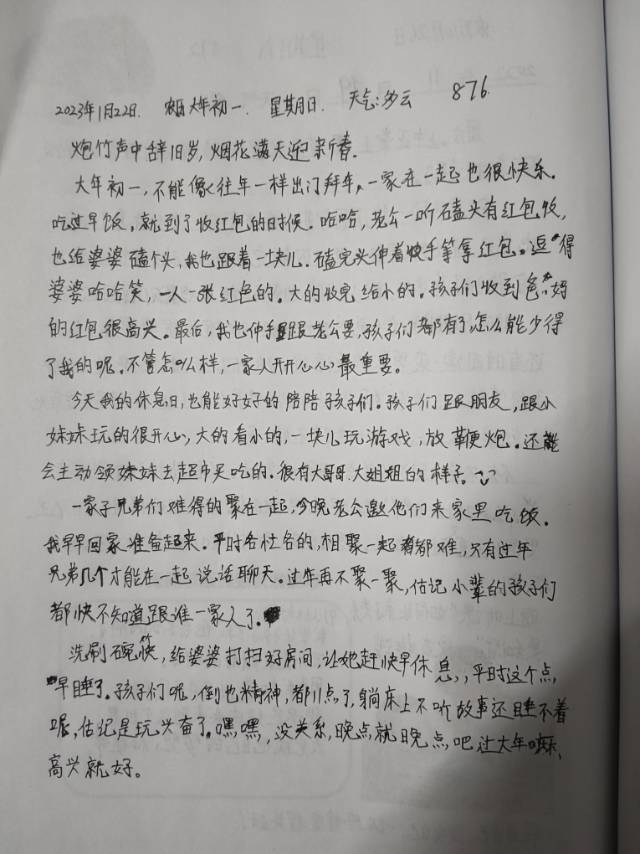 2023年1月22日. 农历大年初一. 星期日. 天气:多云 876
炮竹声中辞旧岁,烟花满天迎新春.
大年初一,不能像往年一样出门拜年,一家在一起也很快乐.
吃过早饭,就到了收红包的时候.哈哈,老公一听磕头有红包收,
也给婆婆磕个头,我也跟着一块儿.磕完头伸着快手等拿红包。逗得
婆婆哈哈笑,一人一张红色的.大的收完给小的.孩子们收到爸妈
的红包很高兴.最后,我也伸手跟老公要,孩子们都有了,怎么能少得
了我的呢.不管怎么样,一家人开开心心最重要。
今天我的休息日,也能好好的陪陪孩子们.孩子们跟朋友,跟小
妹妹玩的很开心,大的看小的,一块儿玩游戏,放鞭炮.还能
会主动领妹妹去超市买吃的.很有大哥哥.大姐姐的样子.
一家子兄弟们难得的聚在一起,今晚老公邀他们来家里吃饭.
我早早回家准备起来.平时各忙各的,相聚一起都难,只有过年
兄弟几个才能在一起说话聊天。过年再不聚一聚,估记小辈的孩子们
都快不知道跟谁一家人了.
洗刷碗筷,给婆婆打扫好房间,让她赶快早休息,平时这个点
早睡了.孩子们呢,倒也精神,都11点了,躺床上不听故事还睡不着
呢,估记是玩兴奋了。嘿嘿,没关系,晚点就晚点吧过大年嘛,
高兴就好。